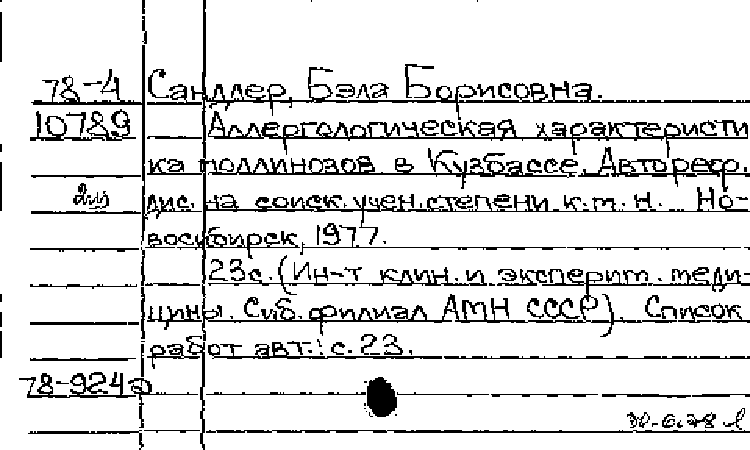 78-4 Сандлер, Бэла Борисовна.
10789 Аллергологическая характеристи
ка поллинозов в Кузбассе. Автореф.
дис. на соиск. учен. степени к.м.н. Но-
восибирск, 1977.
23с. (Ин-т клин. и эксперим. меди-
цины. Сиб. филиал АМН СССР). Список
работ авт.: с. 23.
78-924а